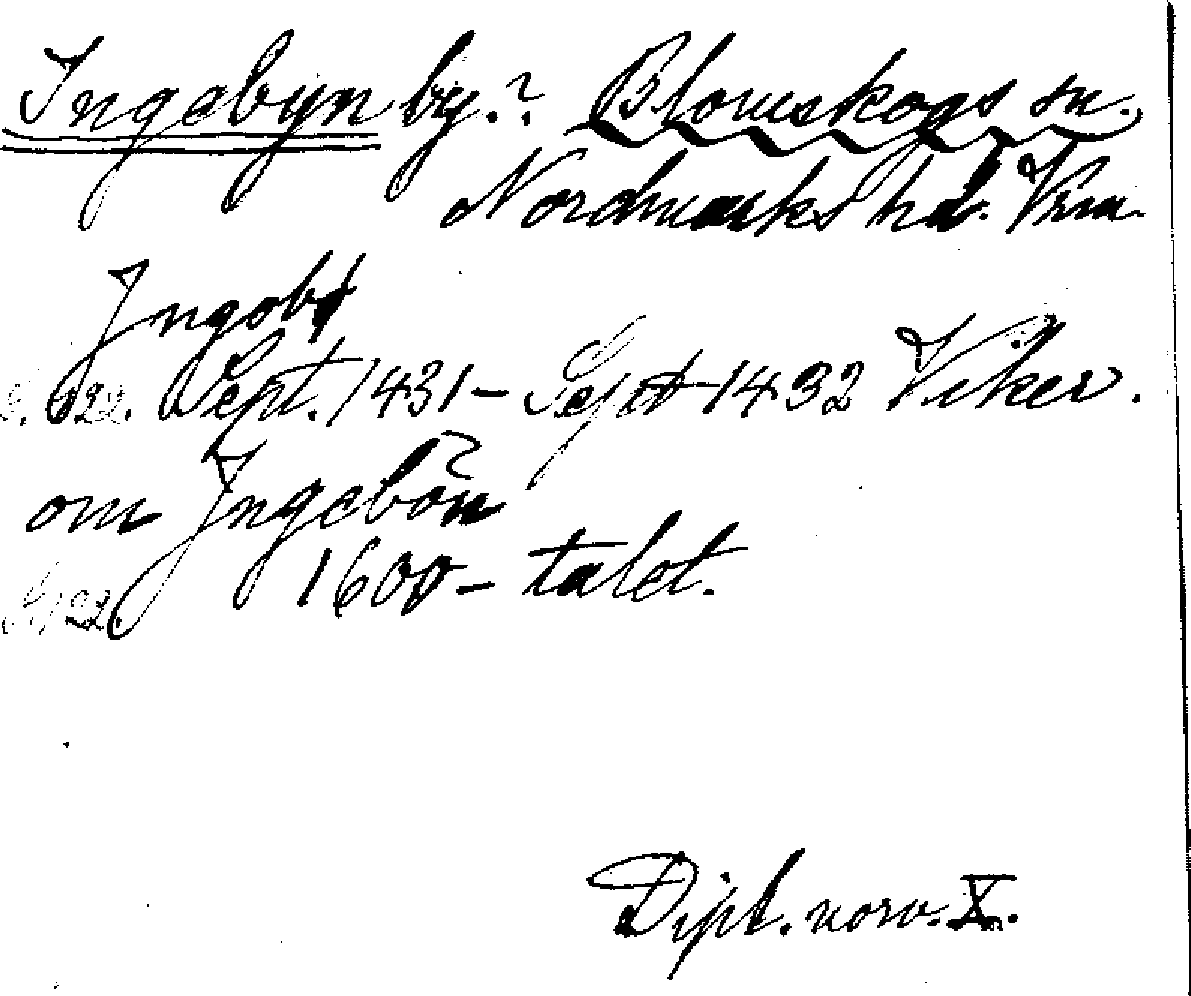 Ingebyn by.? Blomskogs sn.
Nordmarks hd. Vrm.
Ingeby
S. 122. Sept. 1431 – Sept 1432 Viker.
om Ingebön
S. 122. 1600-talet.
Dipl. norv. X.